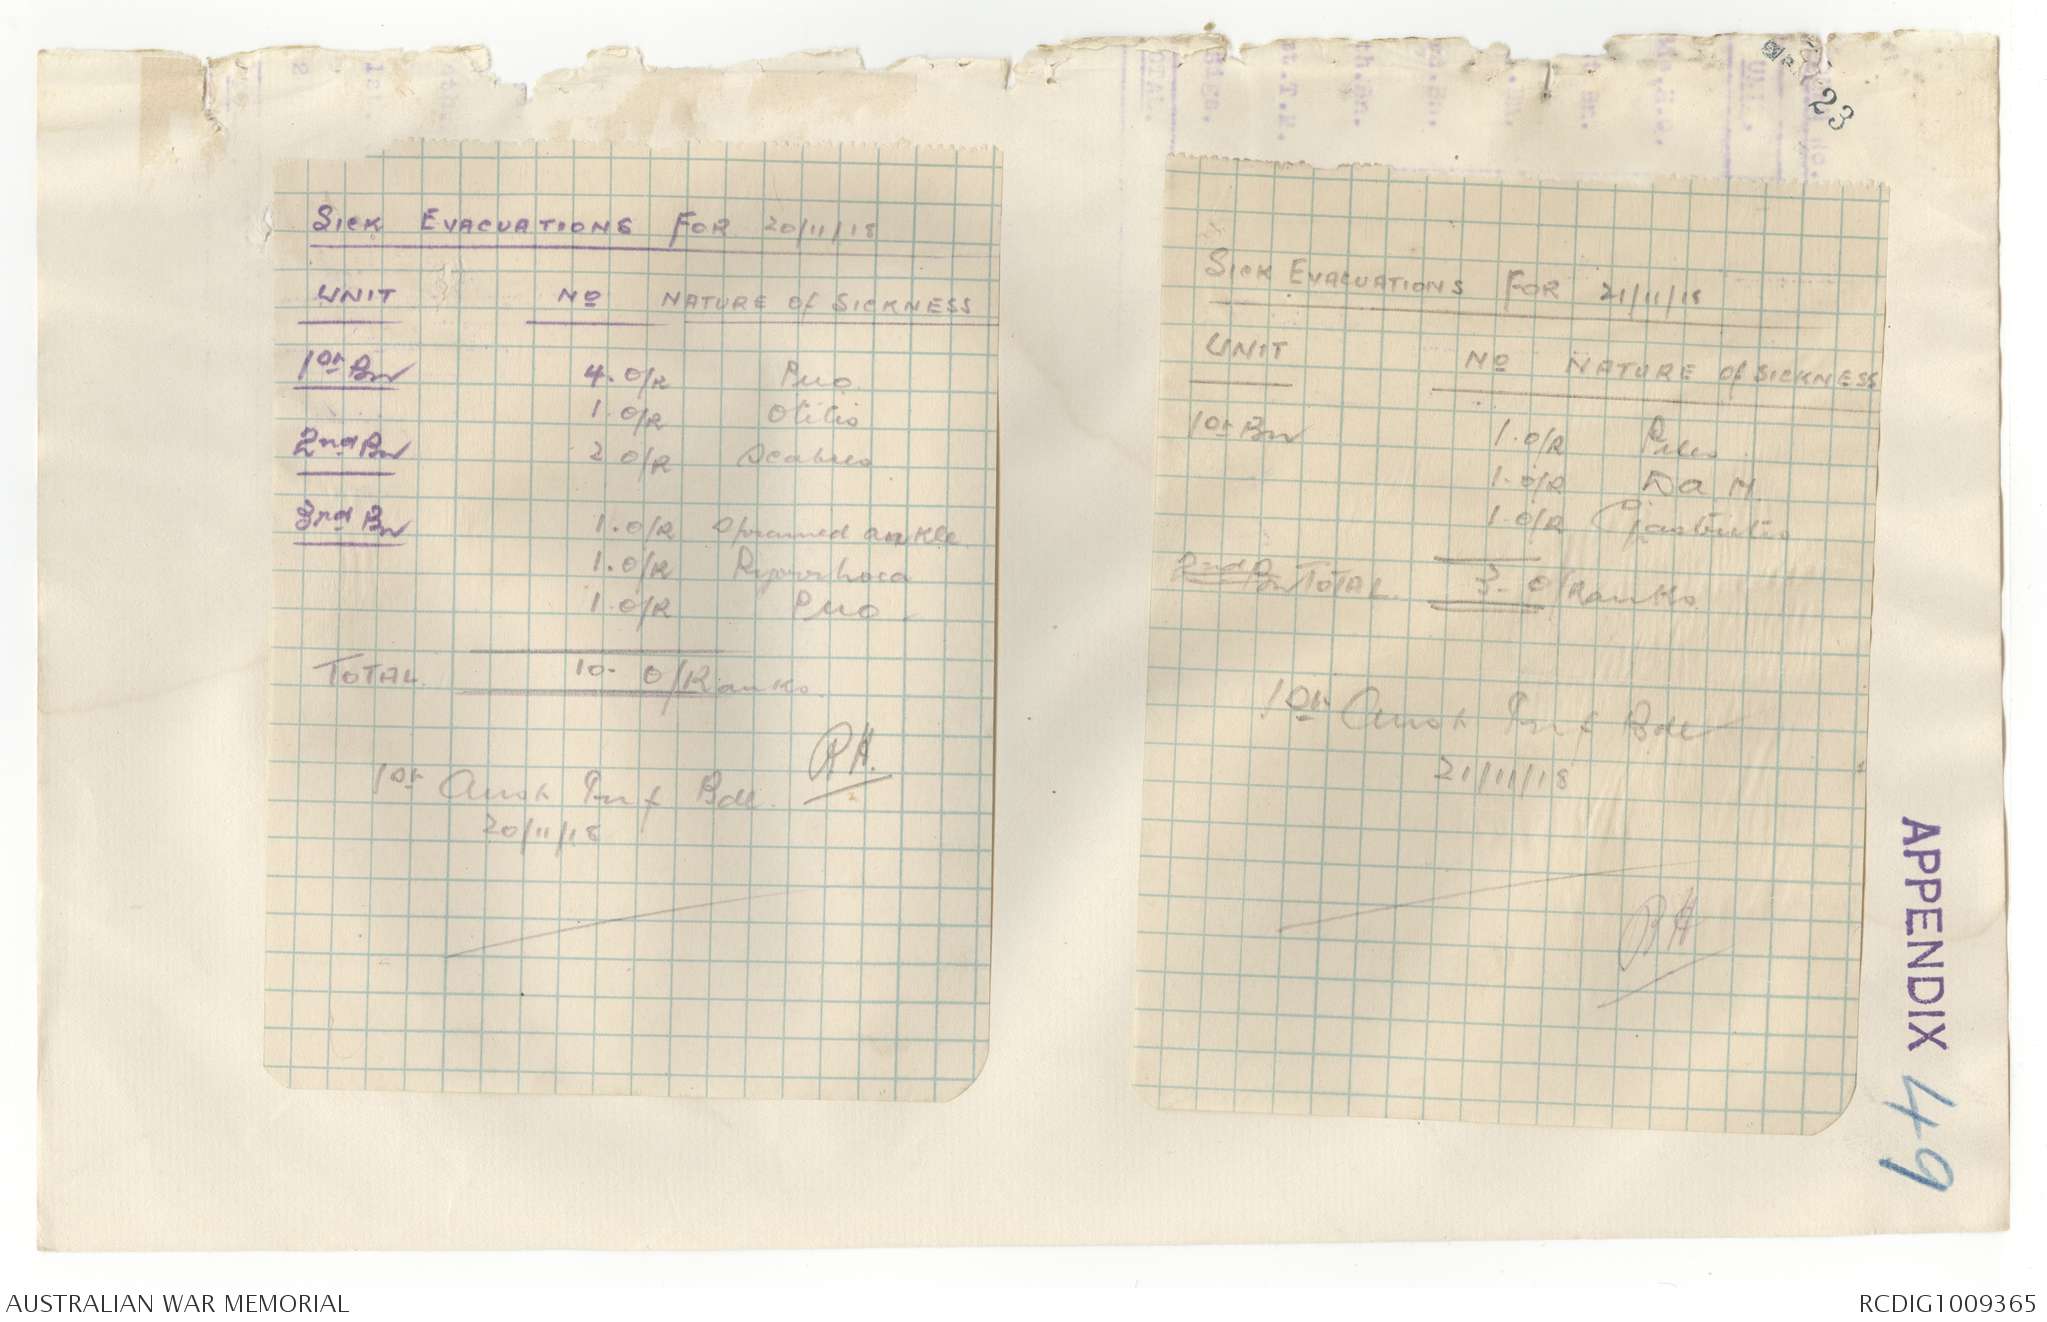 23
SICK EVACUATIONS FOR 20/11/18
UNIT No NATURE of SICKNESS
1st Bn 4. O/R Puo
1. O/R Otitis
2nd Bn 2 O/R Scabies
3rd Bn 1. O/R Sprained ankle
1. O/R Pyorrhoea
1. O/R Puo
TOTAL 10. O/Ranks
RH.
1st Aust Inf Bde
20/11/18
SICK EVACUATIONS FOR 21/11/18
UNIT No NATURE of SICKNESS
1st Bn 1. O/R
1. O/R D a H
1. O/R Gastritis
2nd Bn TOTAL 3. O/Ranks
1st Aust Inf Bde
21/11/18
RH
APPENDIX 49
AUSTRALIAN WAR MEMORIAL
RCDIG1009365